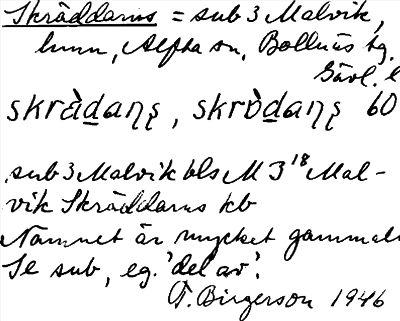 Skräddarns = sub 3 Malvik,
hmn, Alfta sn, Bollnäs tg.
Gävl. l
skràdaṇṣ, skrὸdaṇṣ 60
sub 3 Malvik bls M 3¹⁸ Mal-
vik Skräddarns kb
Namnet är mycket gammalt
Se sub, eg. 'del av'.
T. Birgerson 1946